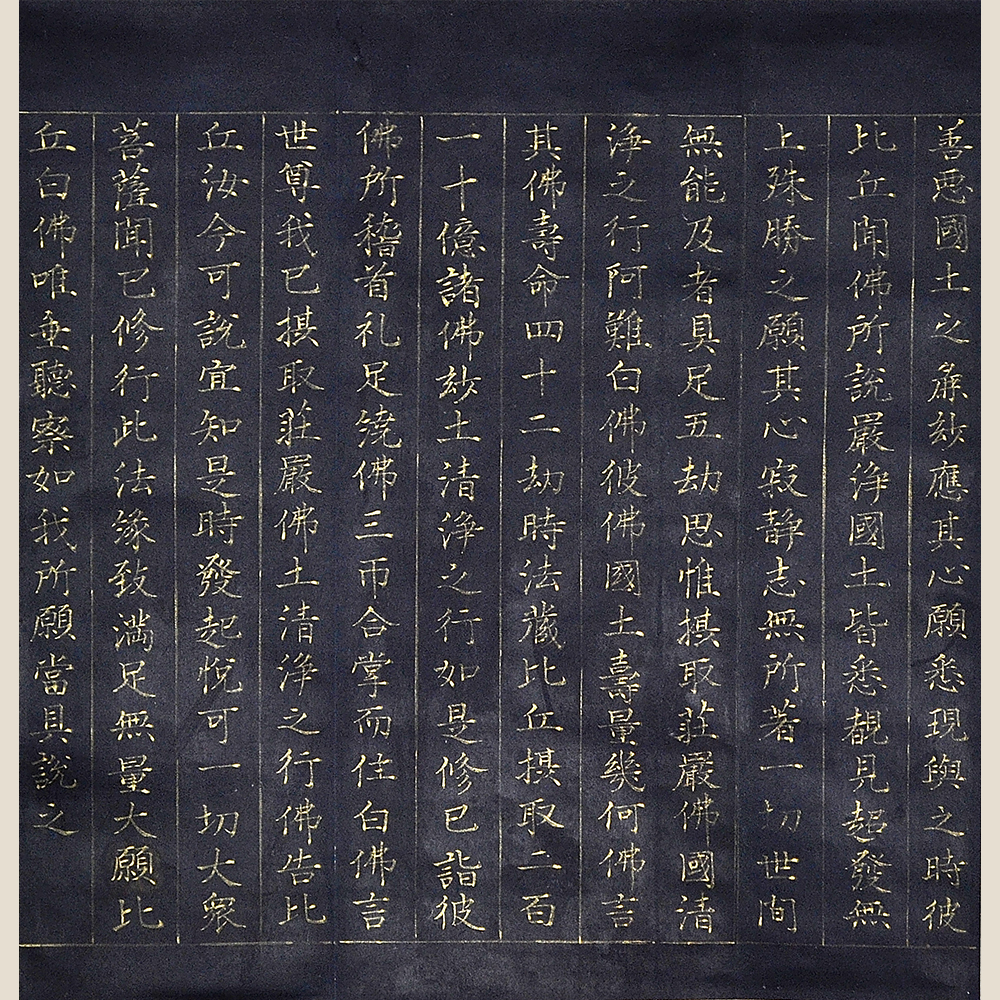 善惡國土之麁妙應其心願悉現與之時彼
比丘聞佛所說嚴淨國土皆悉覩見超發無
上殊勝之願其心寂靜志無所著一切世間
無能及者具足五劫思惟摂取莊嚴佛國清
淨之行阿難白佛彼佛國土壽量幾何佛言
其佛壽命四十二劫時法蔵比丘摂取二百
一十億諸佛玅土清淨之行如是修已詣彼
佛所稽首礼足繞佛三帀合掌而住白佛言
世尊我已摂取莊嚴佛土清淨之行佛告比
丘汝今可說宜知是時發起悅可一切大衆
菩薩聞已修行此法緣致滿足無量大願比
丘白佛唯垂聽察如我所願當具說之